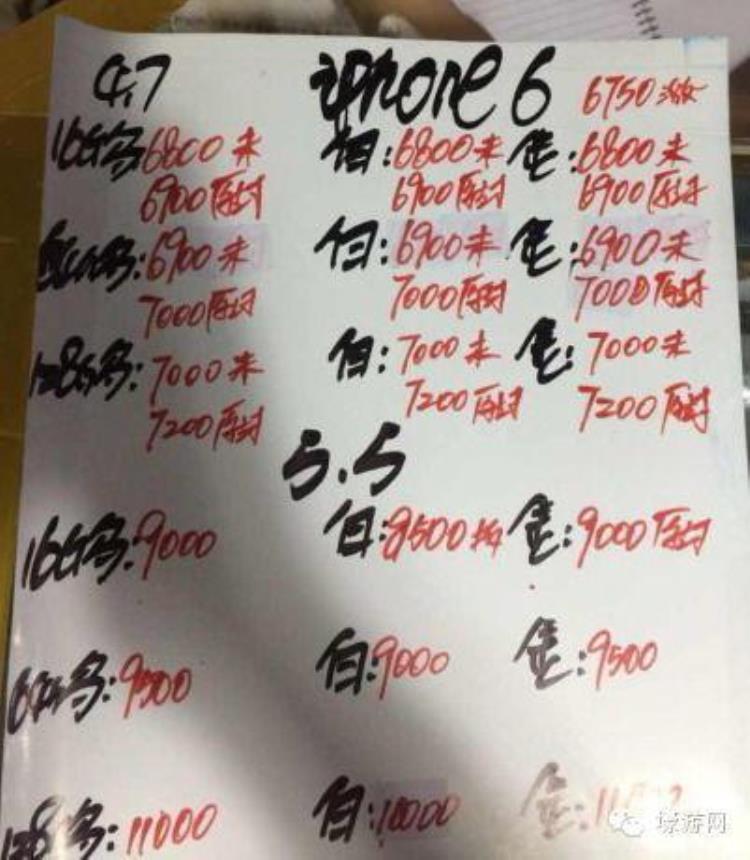 4.7 iphone 6 6750激
16G 6800未 白:6800未 金:6800未
6900原封 6900原封 6900原封
6900未 白:6900未 金:6900未
7000原封 7000原封 7000原封
128G 7000未 白:7000未 金:7000未
7200原封 7200原封 7200原封
5.5
16G 9000 白:8500拆 金:9000原封
64G 9500 白:9000 金:9500
128 11000 白:10000 金:
游网